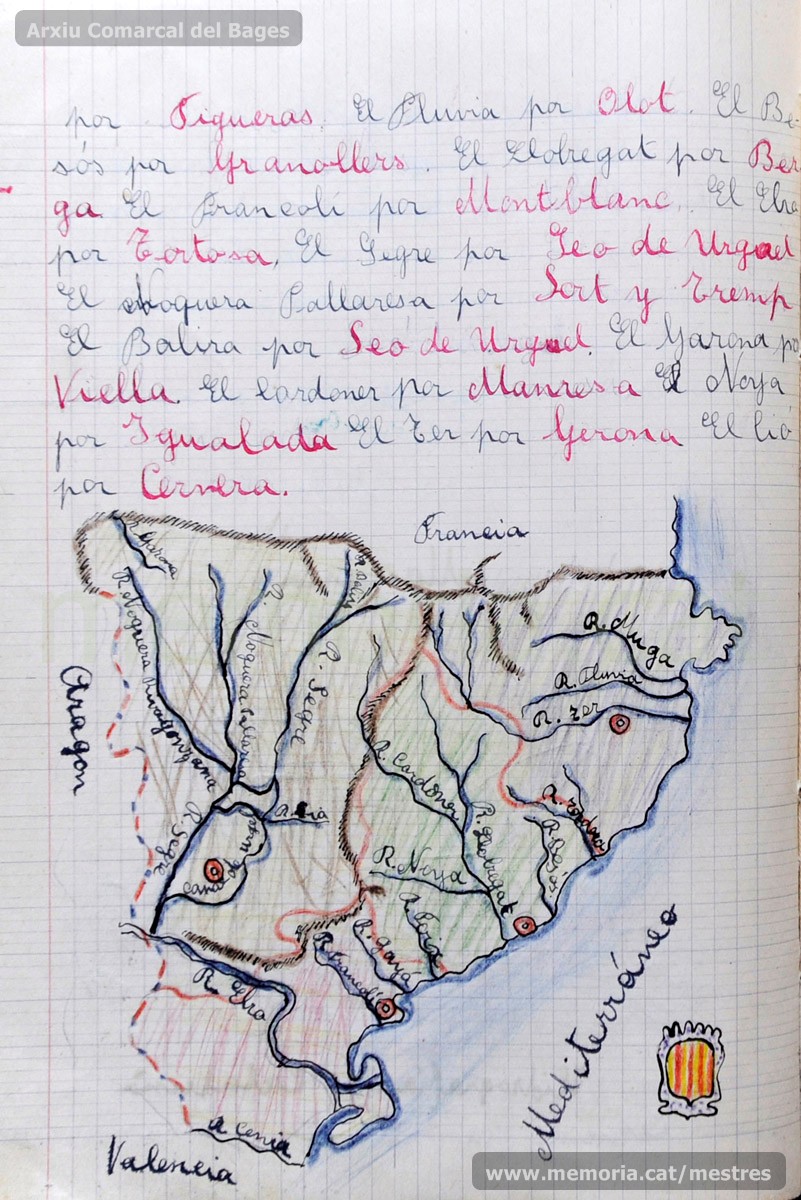 Arxiu Comarcal del Bages
por Figueras. El Fluvia por Olot. El Be-
sós por Granollers. El Llobregat por Ber-
ga. El Francolí por Montblanc. El Ebro
por Tortosa. El Segre por Seo de Urgel
El Noguera Pallaresa por Sort y Tremp
El Balira por Seo de Urgel. El Garona por
Viella. El Cardoner por Manresa El Noya
por Igualada El Ter por Gerona El Sió
por Cervera.
Francia
R. Garona
R. Balira
R. Noguera Rivagorzana
R. Noguera Pallaresa
R. Segre
R. Muga
R. Fluvia
R. Ter
Aragon
R. Cardoner
R. Sió
R. Segre
R. Llobregat
R. Tordera
R. Besós
Canal de
R. Noya
R. Foix
R. Gayá
R. Francolí
R. Ebro
Mediterráneo
R Cenia
Valencia
www.memoria.cat/mestres